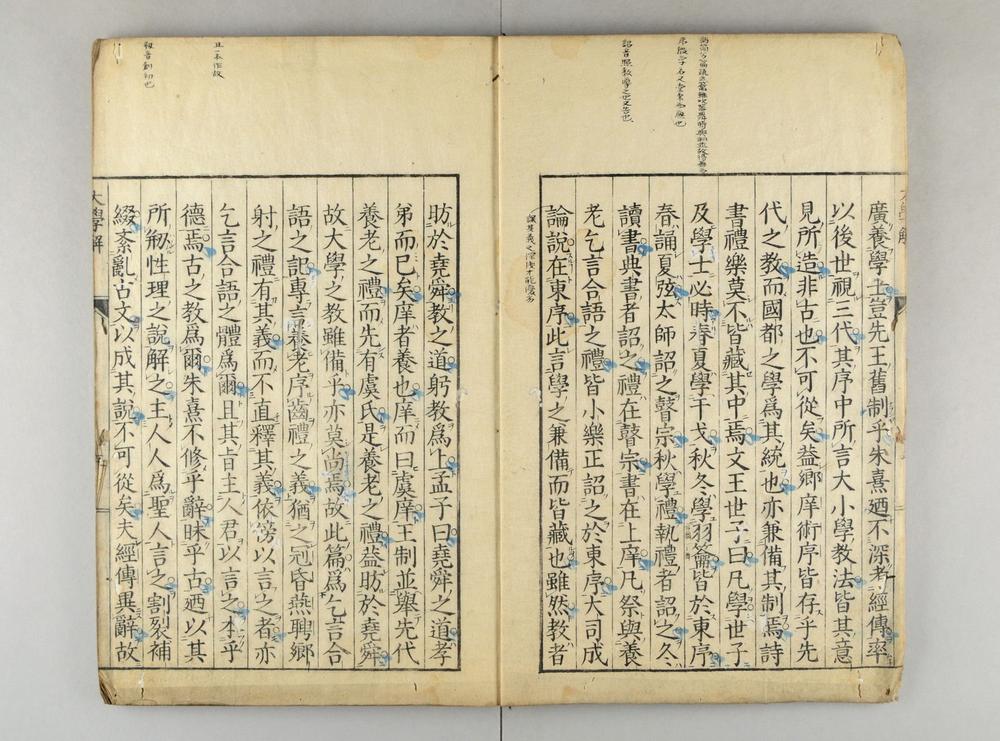 廣養學士豈先王舊制乎朱熹廼不深考經傳率
以後世視三代其序中所言大小學教法皆其意
見所造非古也不可從矣益鄉庠術序皆存乎先
代之教而國都之學爲其統也亦兼備其制焉詩
書禮樂莫不皆藏其中焉文王世子曰凡學世子
及學士必時春夏學干戈秋冬學羽籥皆於東序
春誦夏弦太師詔之瞽宗秋學禮執禮者詔之冬
讀書典書者詔之禮在瞽宗書在上庠凡祭與養
老乞言合語之禮皆小樂正詔之於東序大司成
論說在東序此言學之兼備而皆藏也雖然教者
詔音照教導之也又告也
大學解
昉於堯舜教之道躬教爲上孟子曰堯舜之道孝
弟而已矣庠者養也庠而曰虞庠王制並舉先代
養老之禮而先有虞氏是養老之禮益昉於堯舜
故大學之教雖備乎亦莫尚焉故此篇爲乞言合
語之記專言養老序齒禮之義猶之冠昏燕聘鄉
射之禮有其義而不直釋其義依傍以言之者亦
乞言合語之體爲爾且其旨主人君以言之本乎
德焉古之教爲爾朱熹不修乎辭昧乎古廼以其
所刱性理之說解之主人人爲聖人言之割裂補
綴紊亂古文以成其說不可從矣夫經傳異辭故
且一本作故
刱音創初也
大學解